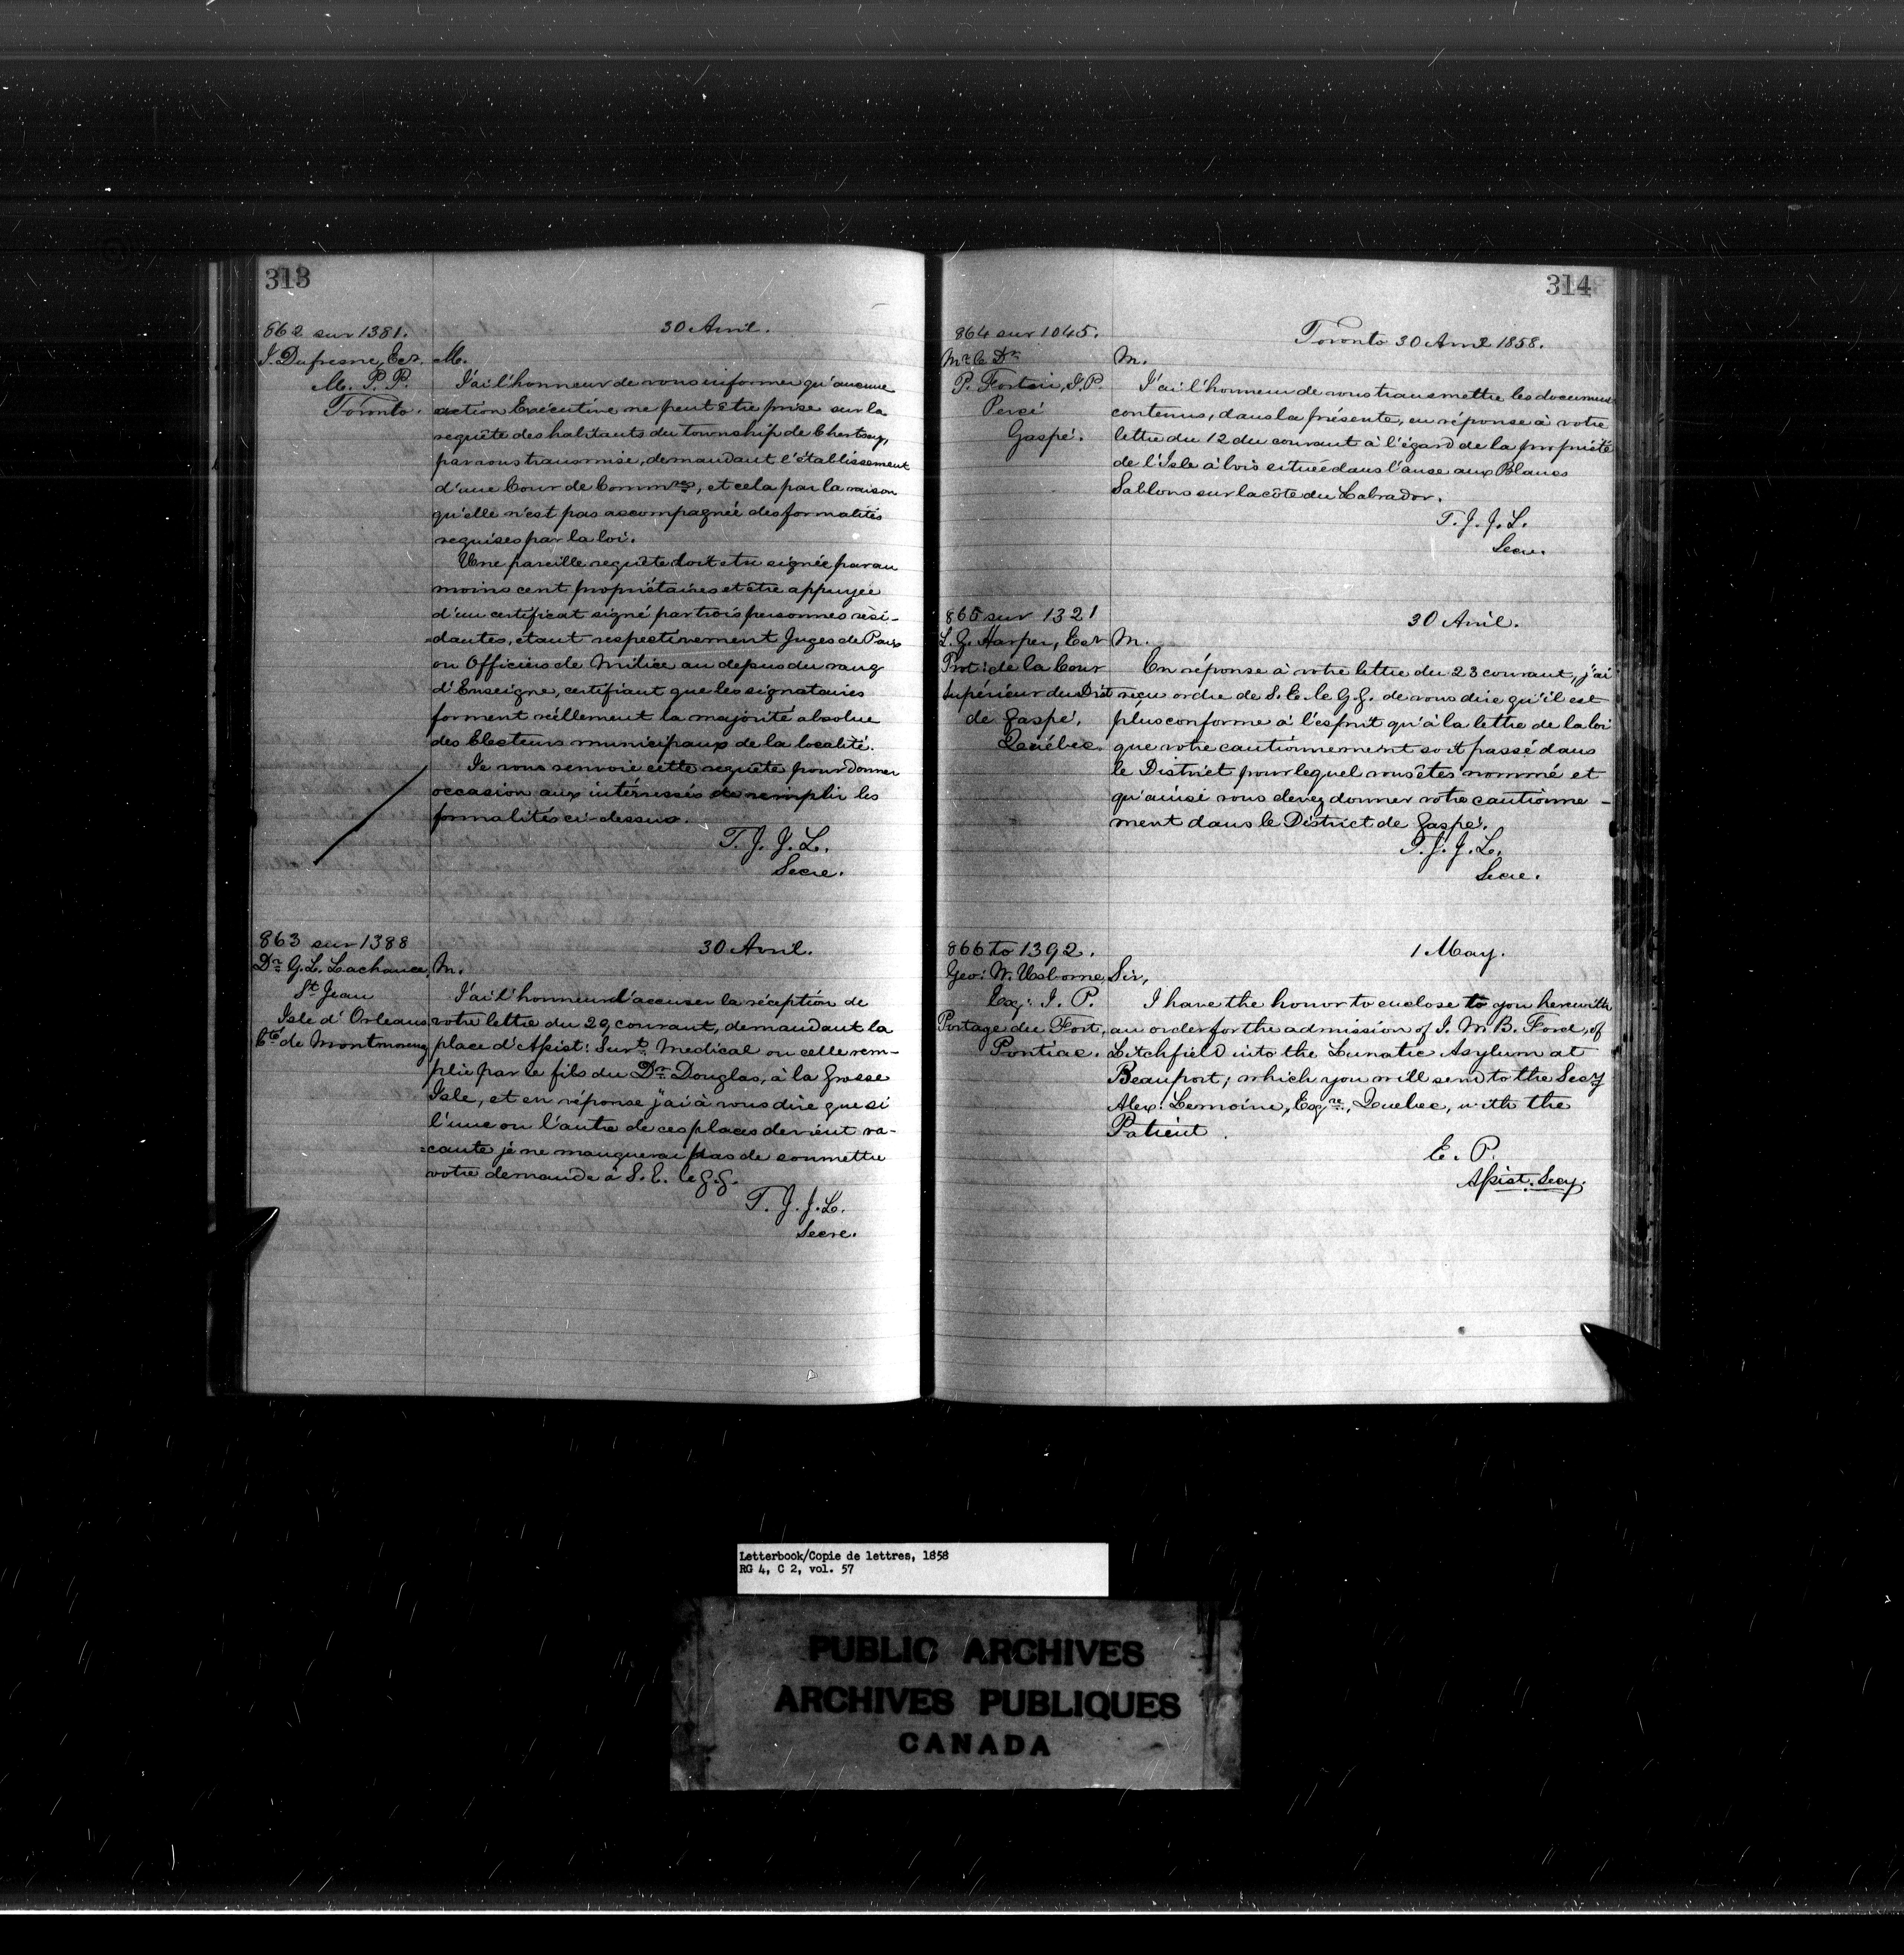 313
862 sur 1381.
30 Avril.
J. Dufresne, Ecr.
M. P. P.
Toronto.
M.
J'ai l'honneur de vous informer qu'aucune
action Exécutive ne peut être prise sur la
requête des habitants du township de Chertsey,
par vous transmise, demandant l'établissement
d'une Cour de Commres, et cela par la raison
qu'elle n'est pas accompagnée des formalités
requises par la loi.
Une pareille requête doit etre signée par au
moins cent propriétaires et être appuyée
d'un certificat signé par trois personnes rési-
=dantes, etant respectivement Juges de Paix
ou Officiers de Milice au depus du rang
d'Enseigne, certifiant que les signataires
forment réellement la majorité absolue
des Electeurs municipaux de la localité.
Je vous renvoie cette requête pour donner
occasion aux intéressés de remplir les
formalités ci-dessus.
T. J. J. L.
Secre.
863 sur 1388
30 Avril.
Dr G. L. Lachance,
St Jean
Isle d'Orleans
Cté de Montmorency
M.
J'ai l'honneur d'accuser la réception de
votre lettre du 29 courant, demandant la
place d'Assist: Surt Medical ou celle rem-
plie par le fils du Dr Douglas, à la Grosse
Isle, et en réponse j'ai à vous dire que si
l'une ou l'autre de ces places devient va-
=cante je ne manquerai pas de soumettre
votre demande à S. E. le G. G.
T. J. J. L.
Secre.
314
864 sur 1045.
Toronto 30 Avril 1858.
Mr le Dr
P. Fortin, J. P.
Percé
Gaspé.
M.
J'ai l'honneur de vous transmettre les documents
contenus, dans la présente, en réponse à votre
lettre du 12 du courant à l'égard de la propriété
de l'Isle à bois située dans l'anse aux Blancs
Sablons sur la côte du Labrador.
T. J. J. L.
Secre.
865 sur 1321
30 Avril.
L. G. Harper, Ecr
Prot: de la Cour
Supérieur du Dist
de Gaspé.
Québec.
M.
En réponse à votre lettre du 23 courant, j'ai
reçu ordre de S. E. le G. G. de vous dire qu'il est
plus conforme à l'esprit qu'à la lettre de la loi
que votre cautionnement soit passé dans
le District pour lequel vous êtes nommé et
qu'ainsi vous devez donner votre cautionne-
ment dans le District de Gaspé.
T. J. J. L.
Secre.
866 to 1392.
1 May.
Geo: W. Usborne,
Esq: J. P.
Portage du Fort,
Pontiac.
Sir,
I have the honor to enclose to you herewith
an order for the admission of J. M. B. Ford, of
Litchfield into the Lunatic Asylum at
Beauport; which you will send to the Secy
Alex: Lemoine, Esqre, Quebec, with the
Patient.
E. P.
Assist. Secy.
Letterbook/Copie de lettres, 1858
RG 4, C 2, vol. 57
PUBLIC ARCHIVES
ARCHIVES PUBLIQUES
CANADA